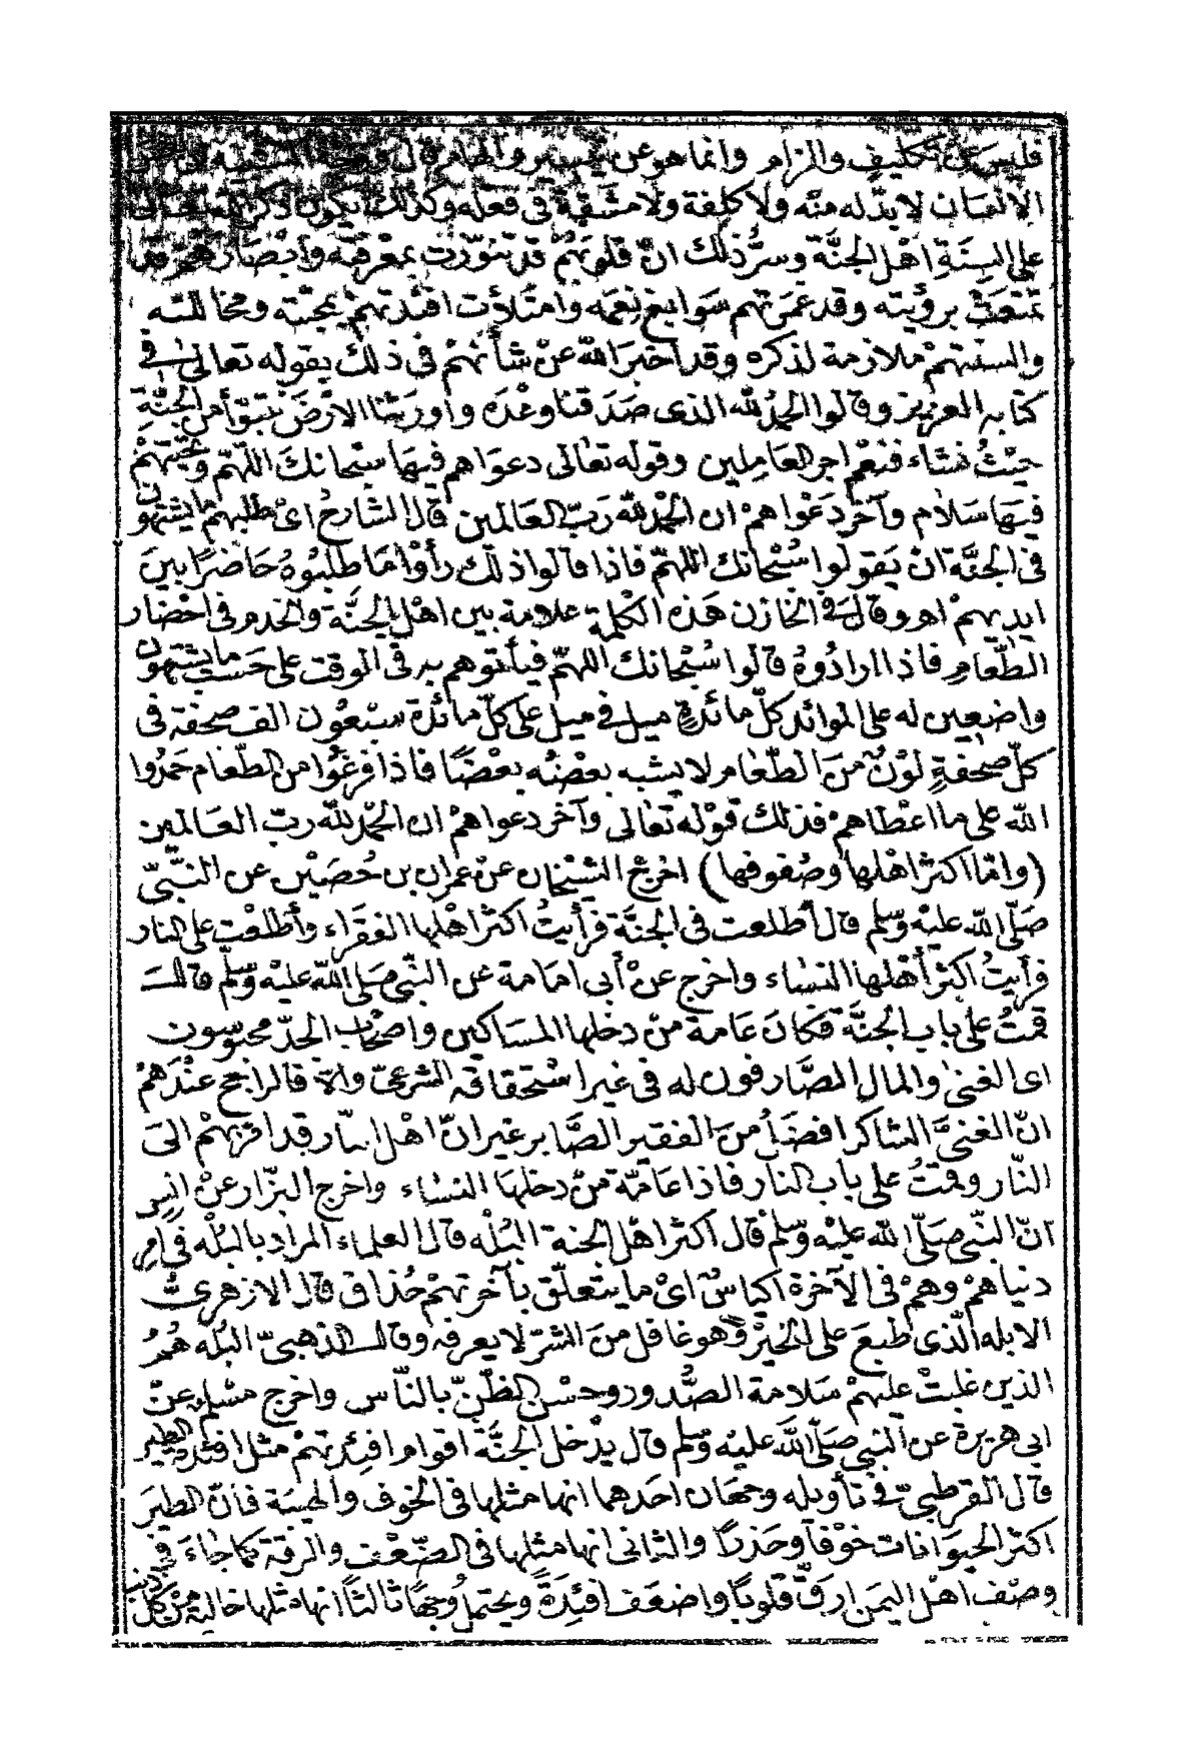 فليس عن تكليف والزام وانما هو عن تيسير والهام قال
الانسان لا بدّ له منه ولا كلفة ولا مشقّة فى فعله وكذلك يكون ذكر
على السِنَةِ اهْل الجنَّة وسرُّ ذلك انّ قلوبَهُمْ قد تنوّرَت بمعْرفته وابْصارهم قد
تمتّعَتْ برؤيته وقد غمَرَتهم سَوابغ نِعَمه وامتلأت افئدتهمْ بمحبّته ومخاللته
والسنتهمْ ملازمة لذكره وقد اخبرَ اللّٰه عنْ شأنهمْ فى ذلك بقوله تعالىٰ فى
كتابه العزيز وقالوا الحمدُ للّٰه الذى صَدَقنا وعْدَه واورَثنا الارْضَ نتبوّأ من الجنَّةِ
حيْثُ نشاء فنعْم اجر العَامِلين وقوله تعَالٰى دعوَاهم فيهَا سبْحانكَ اللّهمّ وتحيّتهمْ
فيهَا سَلام وآخر دَعْواهمْ ان الحمْد للّٰه رَبّ العَالمين قال الشارحُ اىْ طلبهمْ ما يشتهون
فى الجنَّة انْ يَقولُوا سُبْحانك اللّهمّ فاذا قالوا ذلك رأوْا مَا طلبُوْهُ حَاضرًا بينَ
ايديهمْ اهـ وقال فى الخازن هَذه الكلمة علامة بين اهْل الجنَّة والخدم فى احْضار
الطّعامِ فاذا ارادُوهُ قالوا سُبْحانك اللهمّ فيأتوهم به فى الوقت على حَسَب ما يشتهون
واضعين له على الموائد كلّ مائدةٍ ميل فى ميل على كلّ مائدة سبْعُون الف صحفة فى
كلّ صحْفةٍ لوْنٌ منَ الطّعام لا يشبه بعْضُه بعْضًا فاذا فرغُوا من الطّعام حَمدُوا
اللّٰه على ما اعْطاهمْ فذلك قوْله تَعَالٰى وآخر دعواهمْ ان الحمْد للّٰه ربّ العَالمين
(وامّا اكثر اهْلها وصُفوفها) اخرجَ الشيْخان عنْ عمران بن حُصَيْن عن النَّبىّ
صَلّى اللّٰه عليْه وسّلم قال أطلعت فى الجنَّة فرأيتُ اكثر اهْلها الفقَراء وأطّلعْت على النار
فرأيتُ اكثر أهْلها النسَاء واخرج عنْ أبى امَامة عن النّبى صَلى اللّٰه عليْه وسّلم قال
قمتُ على باب الجنَّة فكانَ عَامة منْ دخلها المسَاكين واصْحَاب الجدّ محبوسون
اى الغنىٰ والمال الصَّارفون له فى غير اسْتحقاقه الشرعىّ والّا فالراجح عنْدَهمْ
انّ الغنىَّ الشاكر افضَلُ منَ الفقير الصَّابر غير انّ اهْل النّار قد امرَ بهمْ الى
النّار وقمْتُ على باب النار فاذا عَامّة منْ دخلهَا النسَاء واخرج البزّار عنْ انس
انّ النّبى صَلّى اللّٰه عليْه وسّلم قال اكثر اهْل الجنة البُلْه قال العلماء المراد بالبُلْه فى امر
دنياهمْ وهمْ فى الآخرة اكيَاسٌ اىْ ما يتعلّق بآخرتهمْ حُذاق قال الازهرىُّ
الابله الّذى طبعَ على الخيْر وهو غافل منَ الشرّ لا يعرفه وقال الذهبىّ البُله هُمُ
الذين غلبتْ عليهمْ سَلامة الصُّدور وحسْن الظنّ بالنّاس واخرج مسْلم عنْ
ابى هريرة عن النبى صَلّى اللّٰه عليْه وسّلم قال يدْخل الجنَّة اقوام افئِدتهمْ مثل افئدة الطير
قال القرطبىّ فى تأويله وجهَان احَدهما انها مثلها فى الخوف والهيبة فانّ الطيرَ
اكثر الحيَوانات خوْفًا وحَذرًا والثانى انها مثلها فى الضّعْف والرقة كما جَاءَ فى
وصْف اهْل اليمَن ارقّ قلوبًا واضعَف افئِدَةً ويحتملُ وجْهًا ثالثًا انها مثلها خالية منْ كلّ ذنب